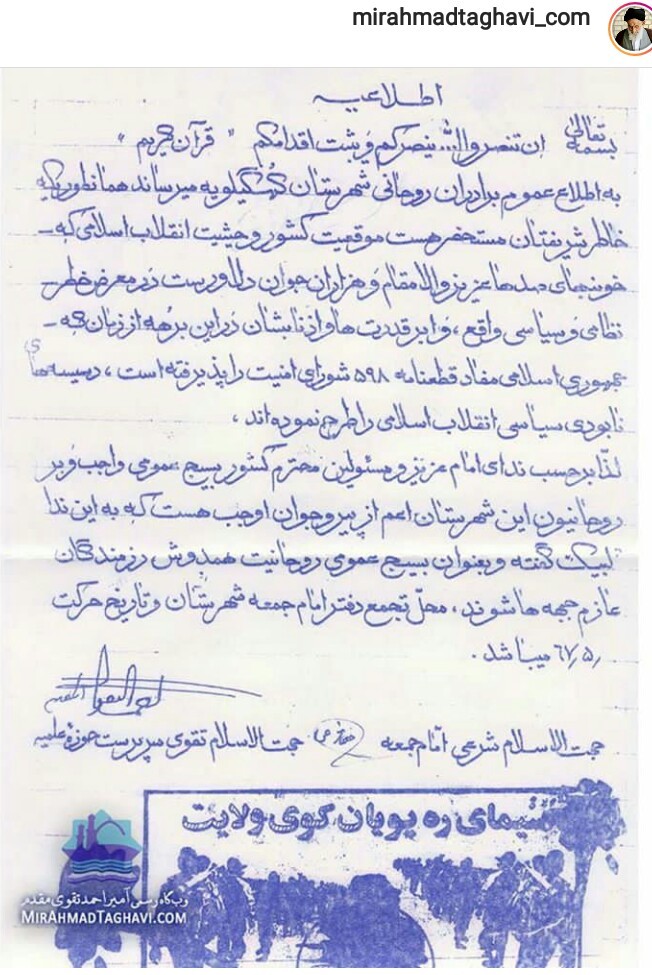 mirahmadtaghavi_com
اطلاعیه
بسمه تعالی ان تنصروالله ینصرکم ویثبت اقدامکم " قرآن کریم "
به اطلاع عموم برادران روحانی شهرستان کهگیلویه میرساند همانطوریکه
خاطر شریفتان مستحضر هست موقعیت کشور و حیثیت انقلاب اسلامی که -
خونبهای صدها عزیز والامقام و هزاران جوان دلاور است در معرض خطر -
نظامی و سیاسی واقع، و ابرقدرت ها و اذنابشان در این برهه از زمان که -
جمهوری اسلامی مفاد قطعنامه ۵۹۸ شورای امنیت را پذیرفته است، دسیسه های
نابودی سیاسی انقلاب اسلامی را طرح نموده اند،
لذا برحسب ندای امام عزیز و مسئولین محترم کشور بسیج عمومی واجب و بر
روحانیون این شهرستان اعم از پیر و جوان اوجب هست که به این ندا
لبیک گفته و بعنوان بسیج عمومی روحانیت همدوش رزمندگان
عازم جبهه ها شوند، محل تجمع دفتر امام جمعه شهرستان و تاریخ حرکت
/۵/۶۷ میباشد.
حجت الاسلام شرعی امام جمعه حجت الاسلام تقوی سرپرست حوزه علمیه
سیمای ره پویان کوی ولایت
وب گاه رسمی آمیراحمد تقوی مقدم
MIRAHMADTAGHAVI.COM